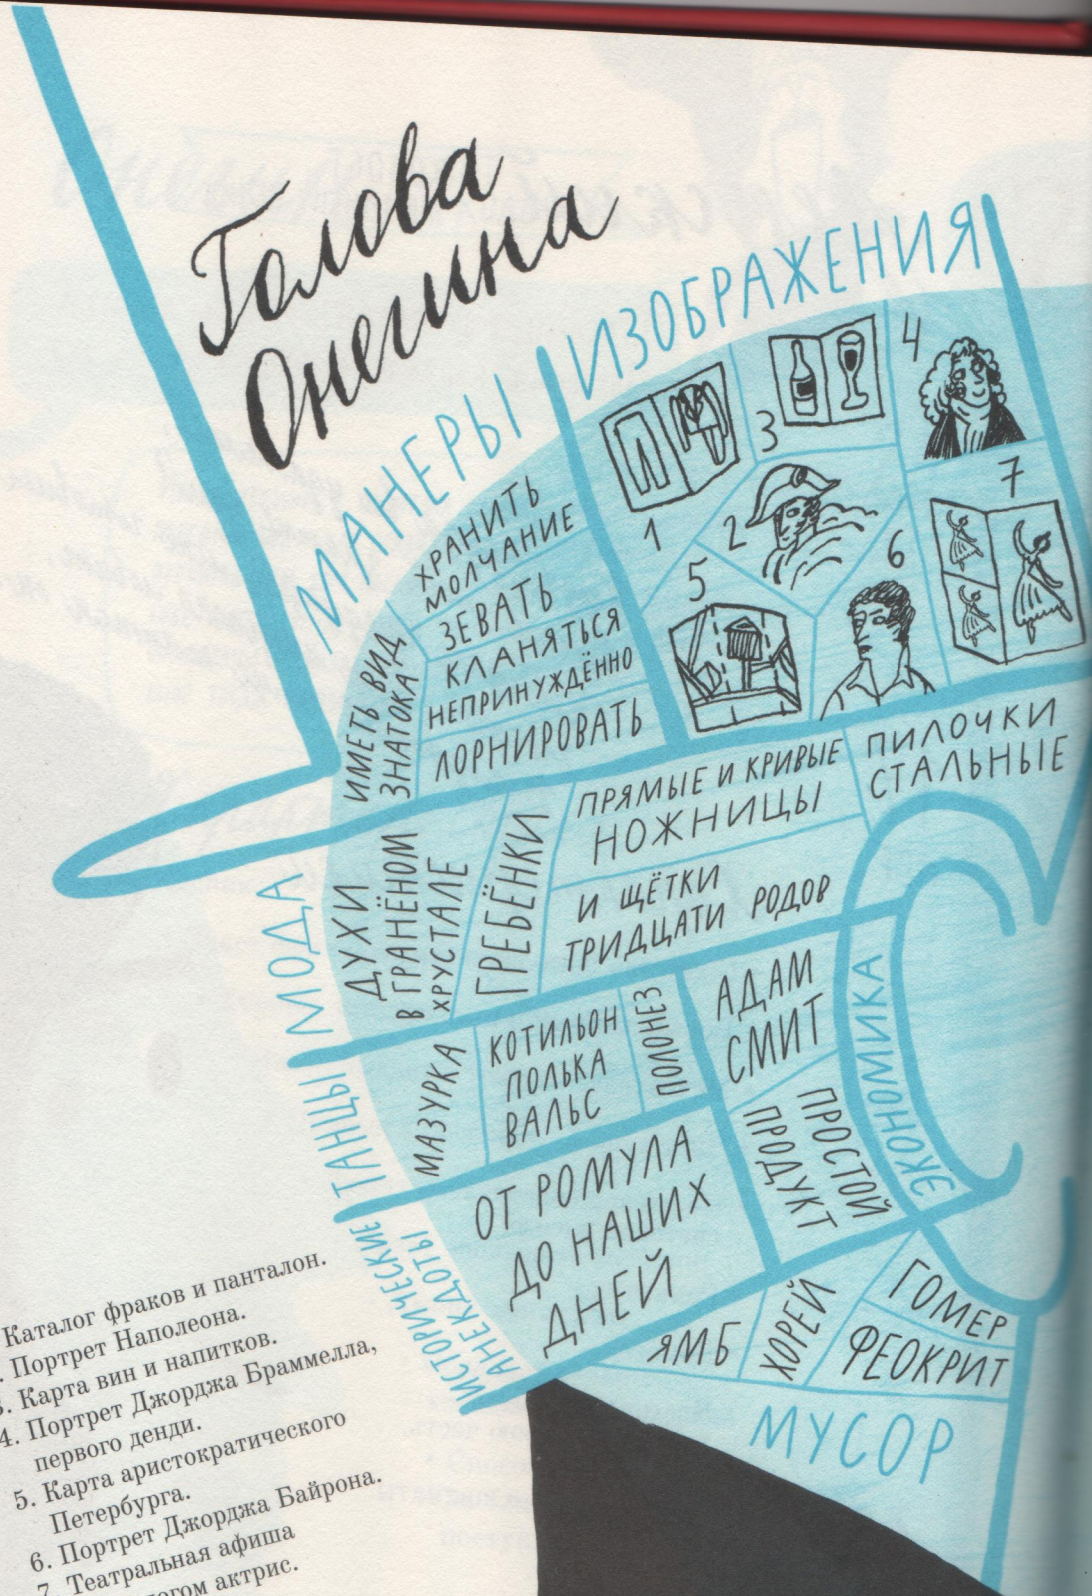 Голова
Онегина
МАНЕРЫ
ИЗОБРАЖЕНИЯ
ХРАНИТЬ
МОЛЧАНИЕ
ЗЕВАТЬ
КЛАНЯТЬСЯ
НЕПРИНУЖДЁННО
ЛОРНИРОВАТЬ
ИМЕТЬ ВИД
ЗНАТОКА
1
2
3
4
5
6
7
МОДА
ДУХИ
В ГРАНЁНОМ
ХРУСТАЛЕ
ГРЕБЁНКИ
ПРЯМЫЕ И КРИВЫЕ
НОЖНИЦЫ
ПИЛОЧКИ
СТАЛЬНЫЕ
И ЩЁТКИ
ТРИДЦАТИ РОДОВ
ТАНЦЫ
МАЗУРКА
КОТИЛЬОН
ПОЛЬКА
ВАЛЬС
ПОЛОНЕЗ
ЭКОНОМИКА
АДАМ
СМИТ
ПРОСТОЙ
ПРОДУКТ
ИСТОРИЧЕСКИЕ
АНЕКДОТЫ
ОТ РОМУЛА
ДО НАШИХ
ДНЕЙ
ЯМБ
ХОРЕЙ
ГОМЕР
ФЕОКРИТ
МУСОР
Каталог фраков и панталон.
. Портрет Наполеона.
3. Карта вин и напитков.
4. Портрет Джорджа Браммелла,
первого денди.
5. Карта аристократического
Петербурга.
6. Портрет Джорджа Байрона.
7. Театральная афиша
актрис.